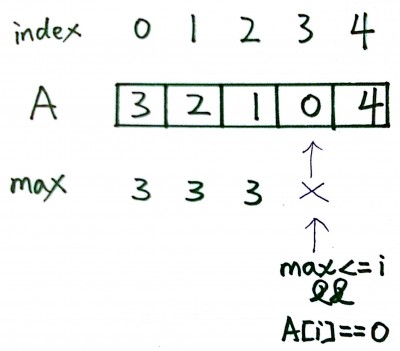 index 0 1 2 3 4
A 3 2 1 0 4
max 3 3 3 X
max<=i
&&
A[i]==0